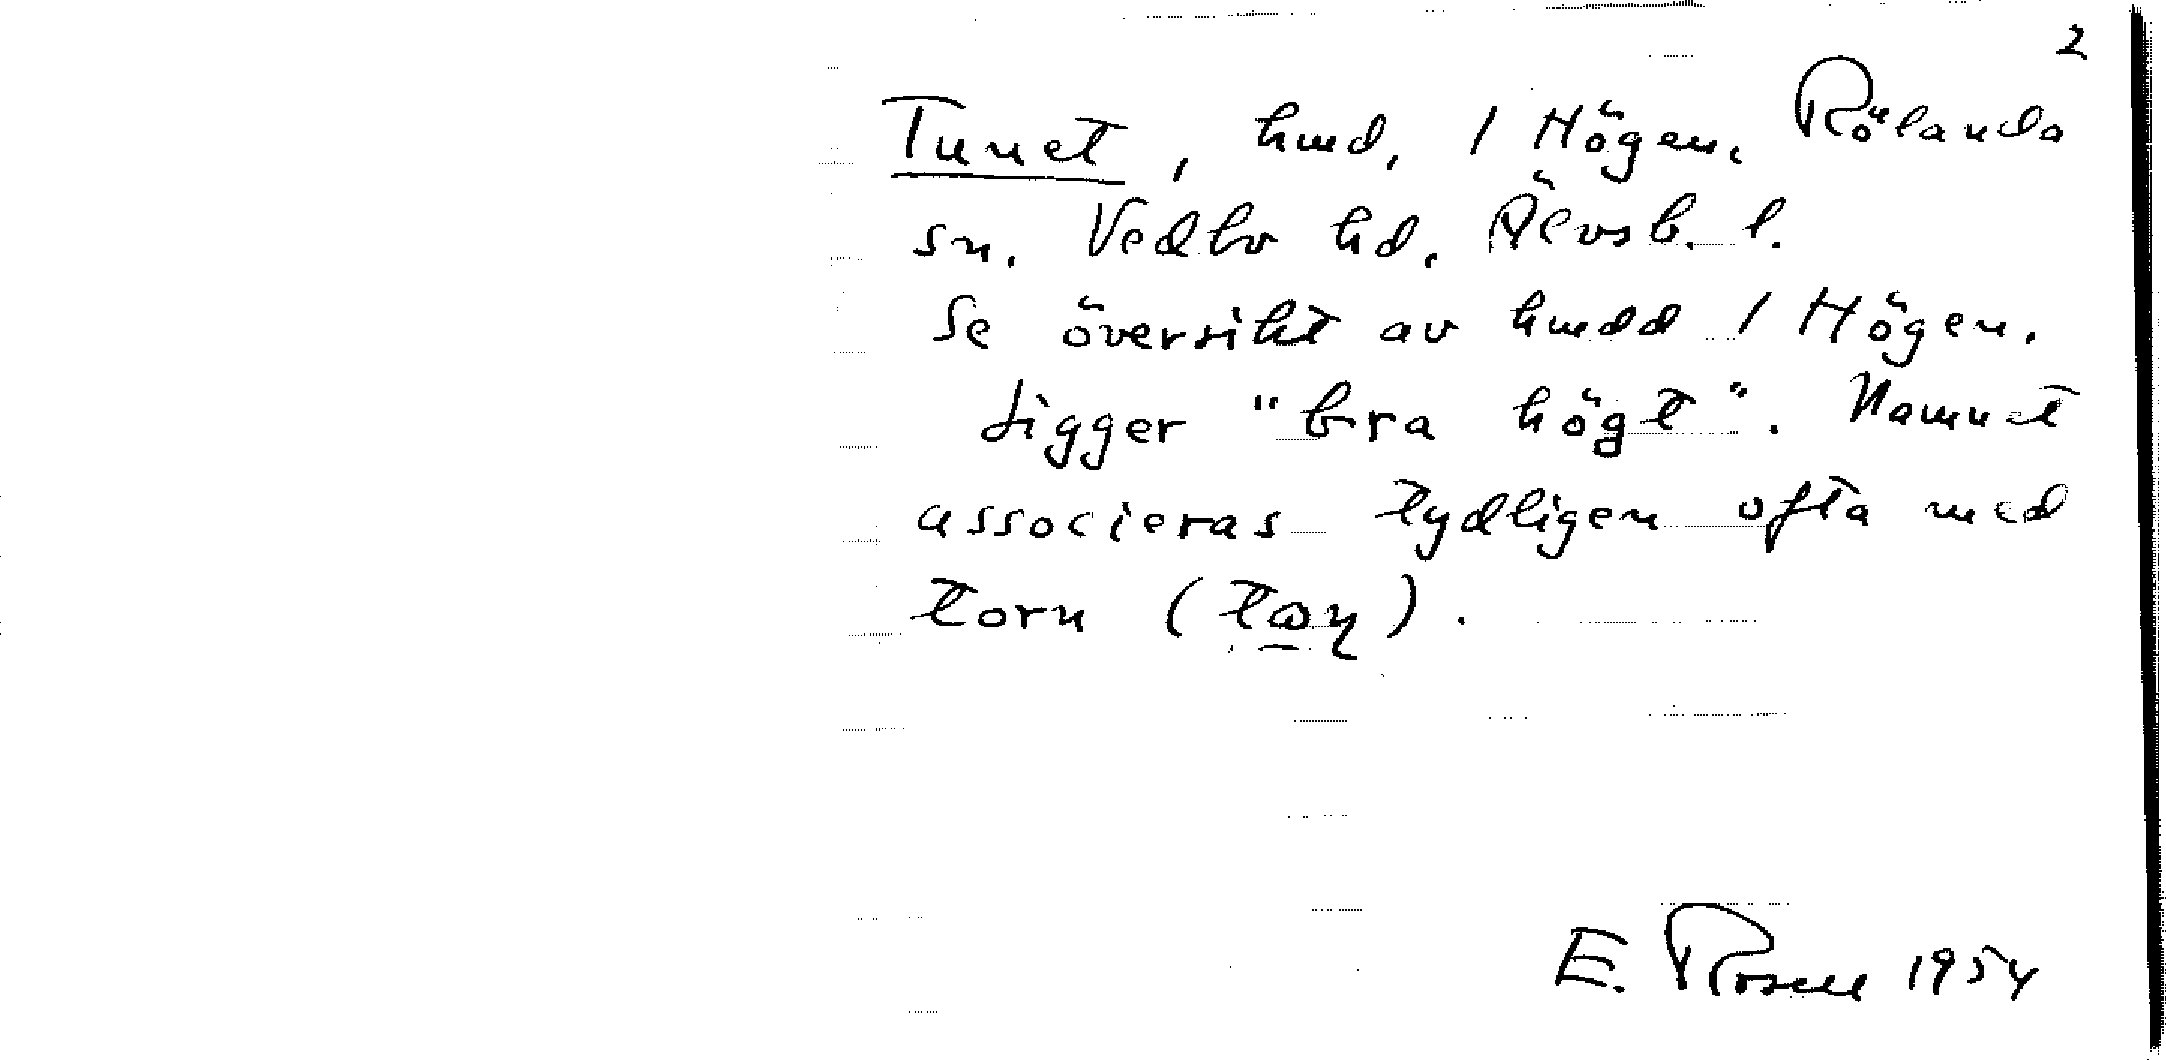 2
Tunet, hmd, 1 Högen, Rölanda
sn. Vedbo hd, Älvsb. l.
Se översikt av hmdd 1 Högen.
Ligger "bra högt". Namnet
associeras tydligen ofta med
torn ( ).
E. Rosell 1954